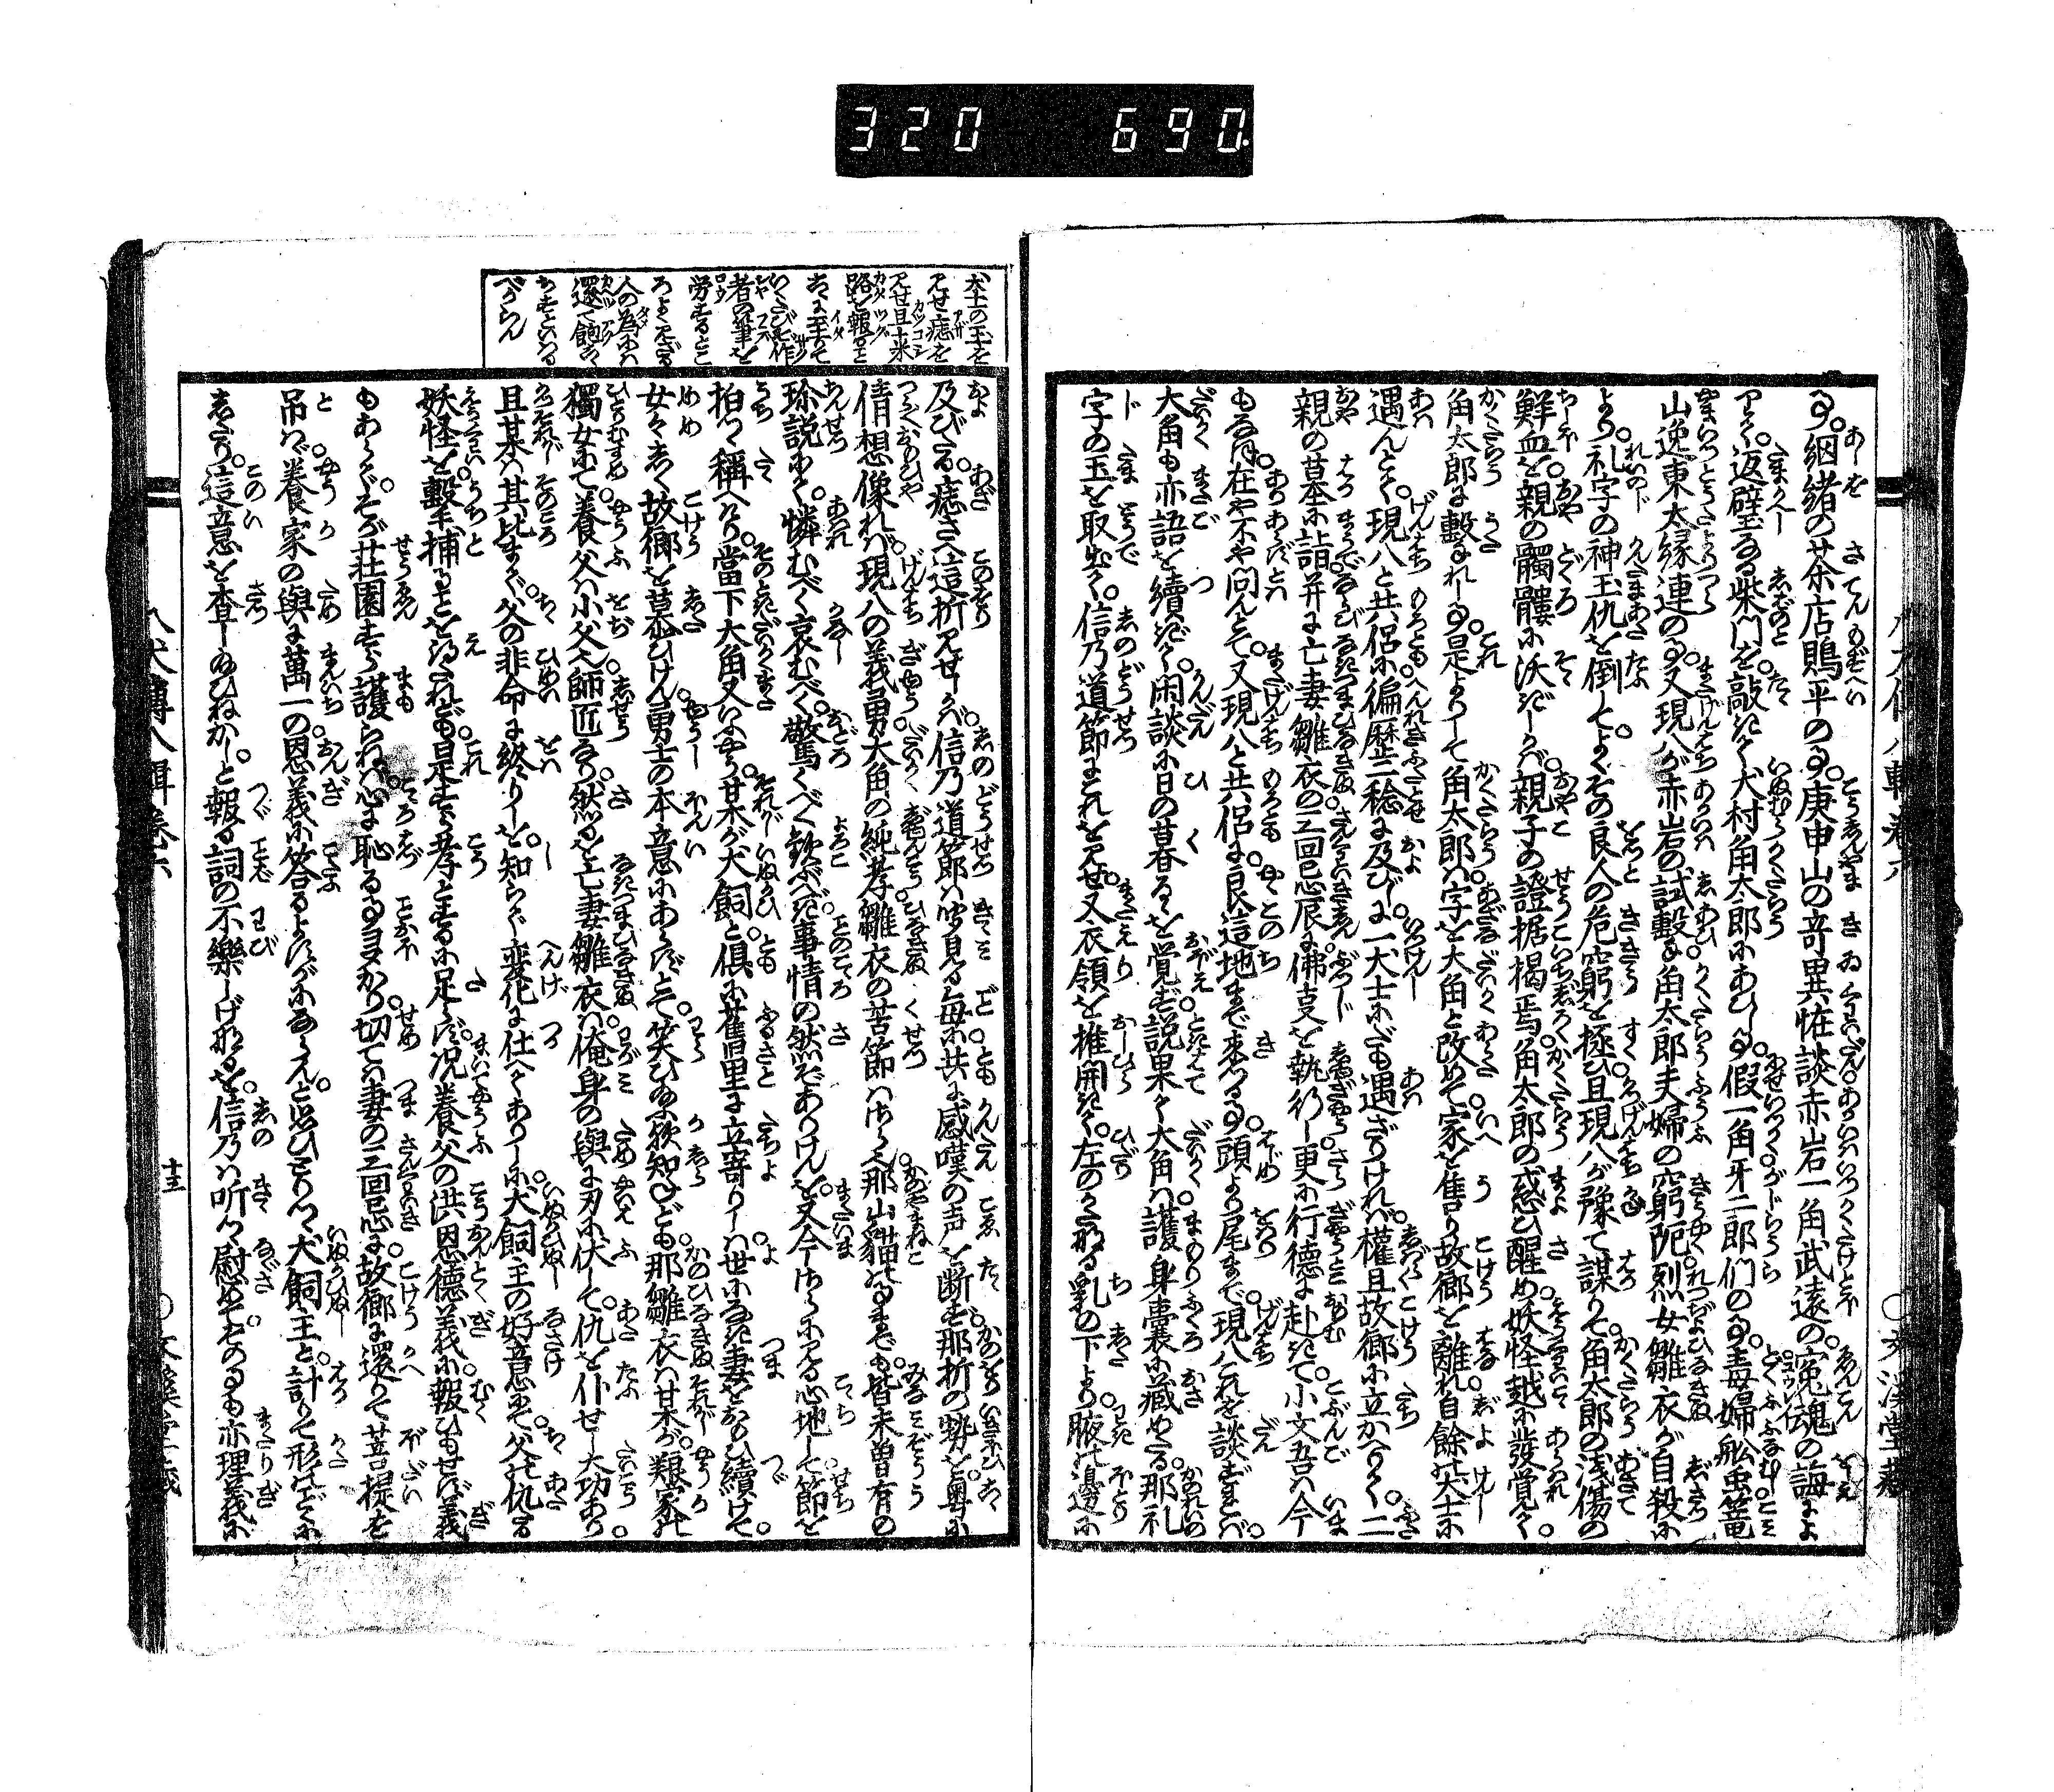 320 690
る。絪緒の茶店鵙平の事。庚申山の奇異怪談赤岩一角武遠の冤魂の誨によ
りて。返璧なる柴門を敲きて。犬村角太郎にあひし事。假一角牙二郎們の事。毒婦舩虫篭
山逸東太縁連の事。又現八が赤岩の試撃。角太郎夫婦の窮阨烈女雛衣が自殺に
より。礼字の神玉仇を倒して。よくその良人の危窮を拯ひ。且現八が豫て謀りて角太郎の浅傷の
鮮血を。親の髑髏に沃ぎしかば。親子の證据掲焉。角太郎の惑ひ醒め。妖怪越に發覚て。
角太郎に撃れし事。是よりして角太郎は字を大角と改めて。家を售り故郷を離れ自餘の犬士に
遇んとて。現八と共侶に徧歴二稔に及びしに。一犬士にだも遇ざりければ。權且故郷に立かへりて。二
親の墓に詣。并に亡妻雛衣の三回忌辰に佛事を執行し。更に行德に赴きて。小文吾は今
もなほ在や不や問んとて。又現八と共侶に。這地まで来つる事。頭より尾まで。現八これを談ずれば。
大角も亦語を續ぎて。閑談に日の暮るを覚ず。説果て大角は。護身嚢に藏めたる。那礼
字の玉を取出て。信乃道節にこれを見せ。又衣領を推開きて。左のかたなる乳の下より。腋の邊に
犬士の玉を
見せ痣を
見せ且十来
路を報ること
あゝに至りて
いくたび歟作
者の筆を
労すること
ろよく見ざる
人の為には
還て飽く
ちすといはる
べからん
及びたる。痣さへ這折見せしかば。信乃道節は聞見る毎に。共に感嘆の声を断ず。那折の勢を。粤に
倩想像れば。現八の義勇大角の純孝雛衣の苦節はさら也。那山猫の事までも。皆未曽有の
珎説にて。憐むべく哀むべく。驚くべく歓ぶべき。事情の然ぞありけんを。又今さらに見る心地して。節を
拍て稱へけり。當下大角又いふやう。某が犬飼と。倶に舊里に立寄りしは。世になき妻をおもひ續けて。
女々しく故郷を慕ひけん。勇士の本意にあらずとて。笑ひや給はん歟知らねども。那雛衣は某が。艱家の
獨女にて。養父は小父也師匠なり。然るを亡妻雛衣は。俺身の與に刃に伏して。仇を仆せし大功あり。
且某は其比まで。父の非命に終りしを。知らで変化に仕へてありしに。犬飼主の好意にて。父の仇なる
妖怪を。撃捕ることを得たれども。是すら孝とするに足らず。况養父の洪恩德義に。報ひもせず。義
もあらで。そが荘園すら護らねば。心に恥る事多かり。切ては妻の三回忌に。故郷に還りて菩提を
吊はゞ。養家の與に萬一の。恩義に答るよすがにならん。と思ひとりつゝ。犬飼主と計りて形のごとくに
しぬるなり。這意を査し給ひねかし。と報る詞の不樂しげなるを。信乃は听つゝ慰めて。そのことも亦理義に
八犬傳八輯巻六
十三